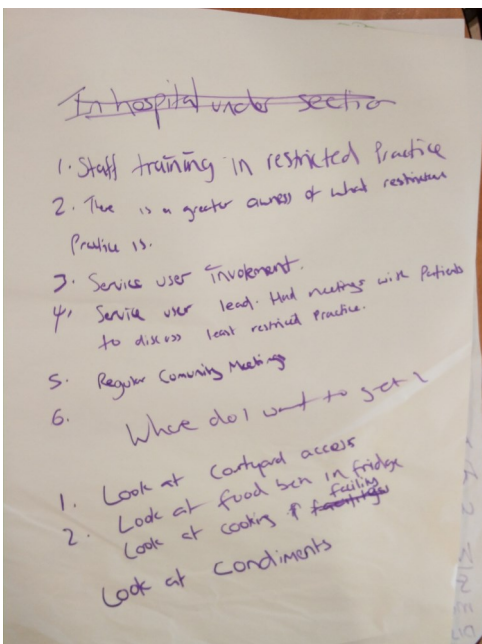 In hospital under section
1. Staff training in restricted Practice
2. There is a greater awness of what restrictive
Practice is.
3. Service user involement.
4. Service user lead. Had meetings with Patients
to discuss least restriced Practice.
5. Regular Comunity Meetings
6.
Where do I want to get
1. Look at Courtyard access
2. Look at food ben in fridge
Look at cooking facility
Look at Condiments